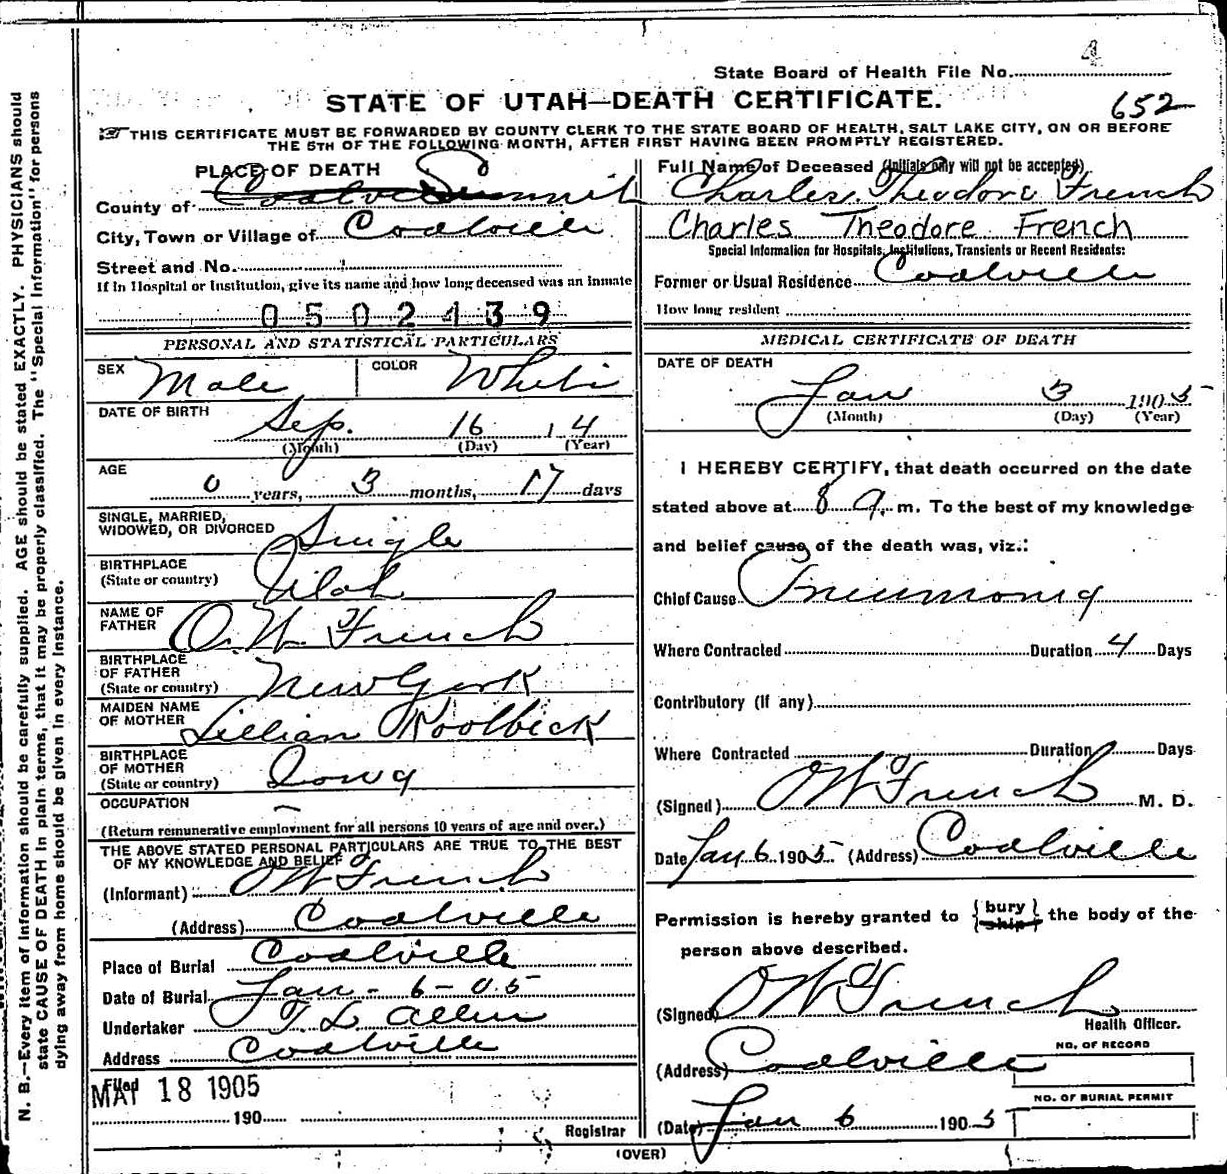 State Board of Health File No. 4
STATE OF UTAH—DEATH CERTIFICATE.
652
THIS CERTIFICATE MUST BE FORWARDED BY COUNTY CLERK TO THE STATE BOARD OF HEALTH, SALT LAKE CITY, ON OR BEFORE
THE 5TH OF THE FOLLOWING MONTH, AFTER FIRST HAVING BEEN PROMPTLY REGISTERED.
PLACE OF DEATH
County of Summit
City, Town or Village of Coalville
Street and No.
If in Hospital or Institution, give its name and how long deceased was an inmate
0502439
PERSONAL AND STATISTICAL PARTICULARS
SEX Male COLOR White
DATE OF BIRTH Sep. 16 1 4
(Month) (Day) (Year)
AGE 0 years, 3 months, 17 days
SINGLE, MARRIED,
WIDOWED, OR DIVORCED Single
BIRTHPLACE
(State or country) Utah
NAME OF
FATHER O. W. French
BIRTHPLACE
OF FATHER
(State or country) New York
MAIDEN NAME
OF MOTHER Lillian Koolbick
BIRTHPLACE
OF MOTHER
(State or country) Iowa
OCCUPATION –
(Return remunerative employment for all persons 10 years of age and over.)
THE ABOVE STATED PERSONAL PARTICULARS ARE TRUE TO THE BEST
OF MY KNOWLEDGE AND BELIEF
(Informant) O W French
(Address) Coalville
Place of Burial Coalville
Date of Burial Jan - 6 - 05
Undertaker T. L. Allen
Address Coalville
Filed
MAY 18 1905
190
Registrar
Full Name of Deceased (Initials only will not be accepted)
Charles Theodore French
Charles Theodore French
Special Information for Hospitals, Institutions, Transients or Recent Residents:
Former or Usual Residence Coalville
How long resident
MEDICAL CERTIFICATE OF DEATH
DATE OF DEATH
Jan 3 1905
(Month) (Day) (Year)
I HEREBY CERTIFY, that death occurred on the date
stated above at 8 a. m. To the best of my knowledge
and belief cause of the death was, viz.:
Chief Cause Pneumonia
Where Contracted Duration 4 Days
Contributory (if any)
Where Contracted Duration Days
(Signed) O W French M. D.
Date Jan 6 1905 (Address) Coalville
Permission is hereby granted to {bury ship} the body of the
person above described.
(Signed) O W French
Health Officer.
(Address) Coalville
NO. OF RECORD
NO. OF BURIAL PERMIT
(Date) Jan 6 1905
(OVER)
N. B.—Every item of information should be carefully supplied. AGE should be stated EXACTLY. PHYSICIANS should
state CAUSE OF DEATH in plain terms, that it may be properly classified. The "Special Information" for persons
dying away from home should be given in every instance.